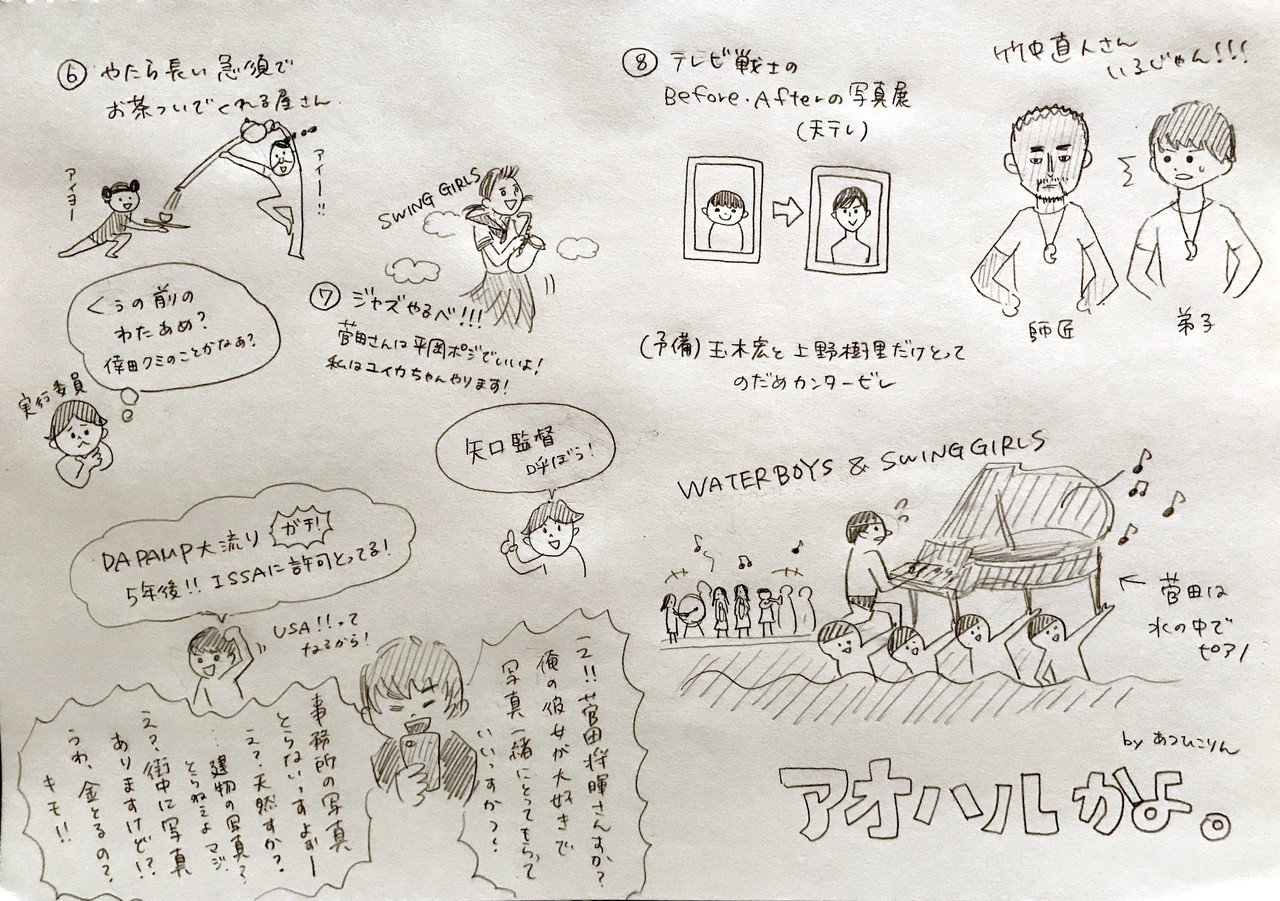 ⑥ やたら長い急須で
お茶ついでくれる屋さん
アイヨー
アイー!!
くぅの前の
わたあめ?
倖田クミのことかなぁ?
実行委員
SWING GIRLS
⑦ ジャズやるべ!!!
菅田さんは平岡ポジでいいよ!
私はユイカちゃんやります!
矢口監督
呼ぼう!
DA PAMP大流行
ガチ!
5年後!! ISSAに許可とってる!
USA!!って
なるから!
え!!菅田将暉さんすか?
俺の彼女が大好きで
写真一緒にとってもらって
いいっすか?
事務所の写真
とらないっすよぉー
え?天然すか?
…建物の写真?
とらねぇよマジ
え?、街中に写真
ありますけど!?
うわ、金とるの?
キモ!!
⑧ テレビ戦士の
Before.Afterの写真展
(天テレ)
竹中直人さん
いるじゃん!!!
師匠
弟子
(予備) 玉木宏と上野樹里だけとって
のだめカンタービレ
WATERBOYS & SWINGGIRLS
← 菅田は
水の中で
ピアノ
by あつひこりん
アオハルかよ。